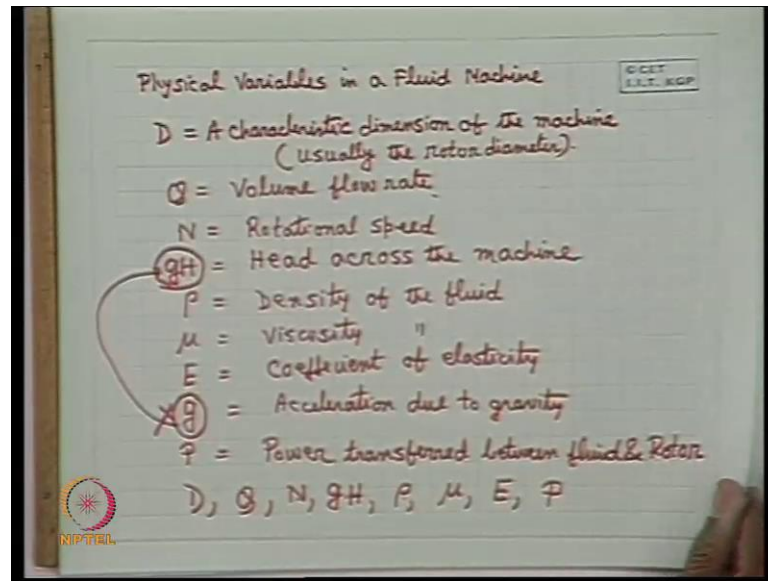 Physical Variables in a Fluid Machine
© CET
I.I.T. KGP
D = A characteristic dimension of the machine
(usually the rotor diameter).
Q = Volume flow rate.
N = Rotational Speed
gH = Head across the machine
ρ = Density of the fluid
μ = Viscosity "
E = Coefficient of elasticity
g = Acceleration due to gravity
P = Power transferred between fluid & Rotor
D, Q, N, gH, ρ, μ, E, P
NPTEL